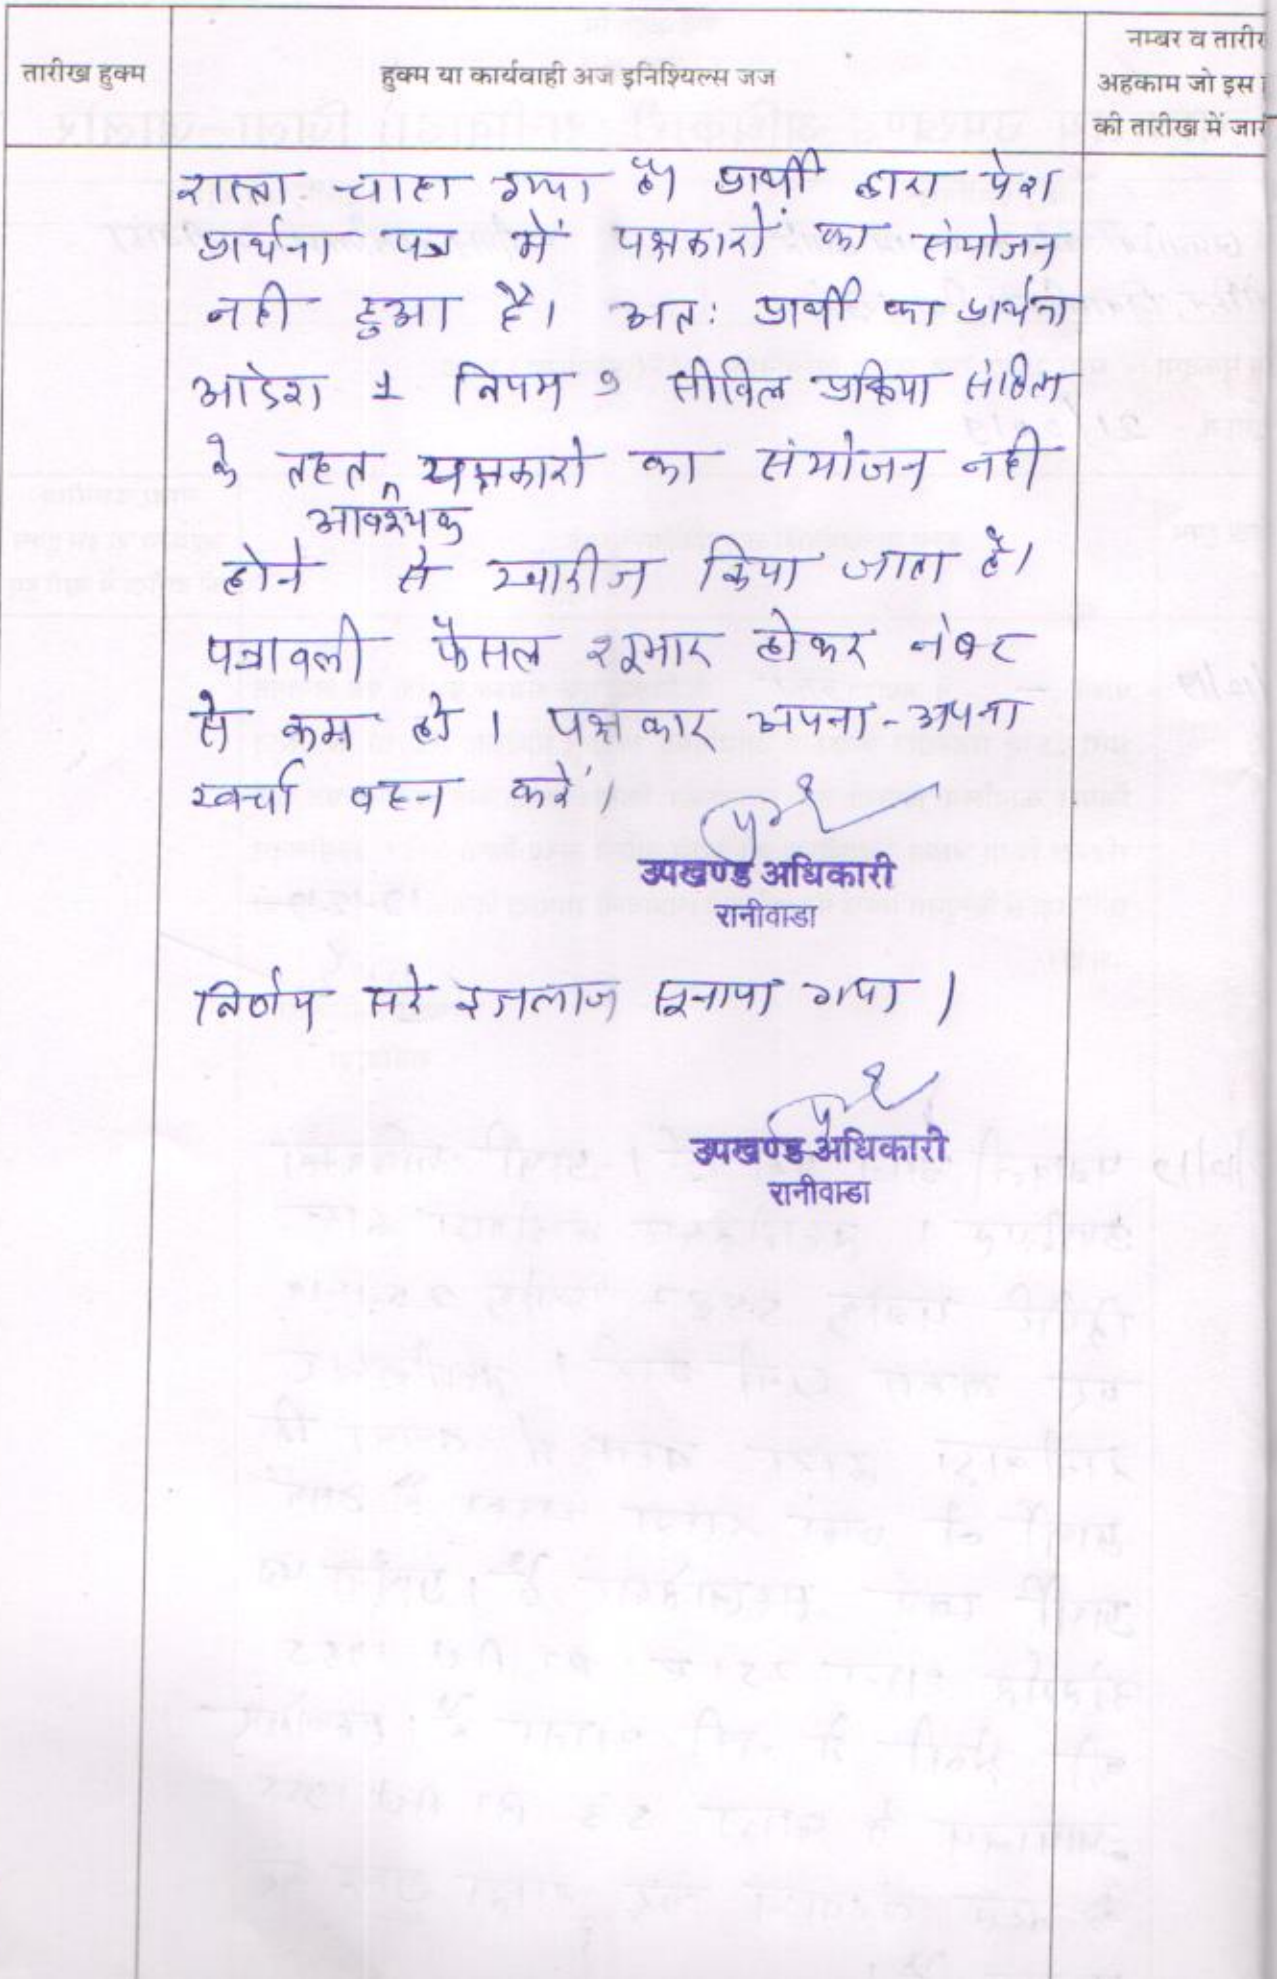 तारीख हुक्म
हुक्म या कार्यवाही अज इनिश्यिल्स जज
नम्बर व तारीख
अहकाम जो इस
की तारीख में जार
रास्ता चाहा गया है। प्रार्थी द्वारा पेश
प्रार्थना पत्र में पक्षकारों का संयोजन
नही हुआ है। अतः प्रार्थी का प्रार्थना
आदेश 1 नियम 9 सीविल प्रक्रिया संहिता
के तहत पक्षकारो का संयोजन नही
आवश्यक
होने से खारीज किया जाता है।
पत्रावली फैसल शुमार होकर नंबर
से कम हो। पक्षकार अपना-अपना
खर्चा वहन करें।
उपखण्ड अधिकारी
रानीवाडा
निर्णय सरे इजलाज सूनाया गया।
उपखण्ड अधिकारी
रानीवाडा